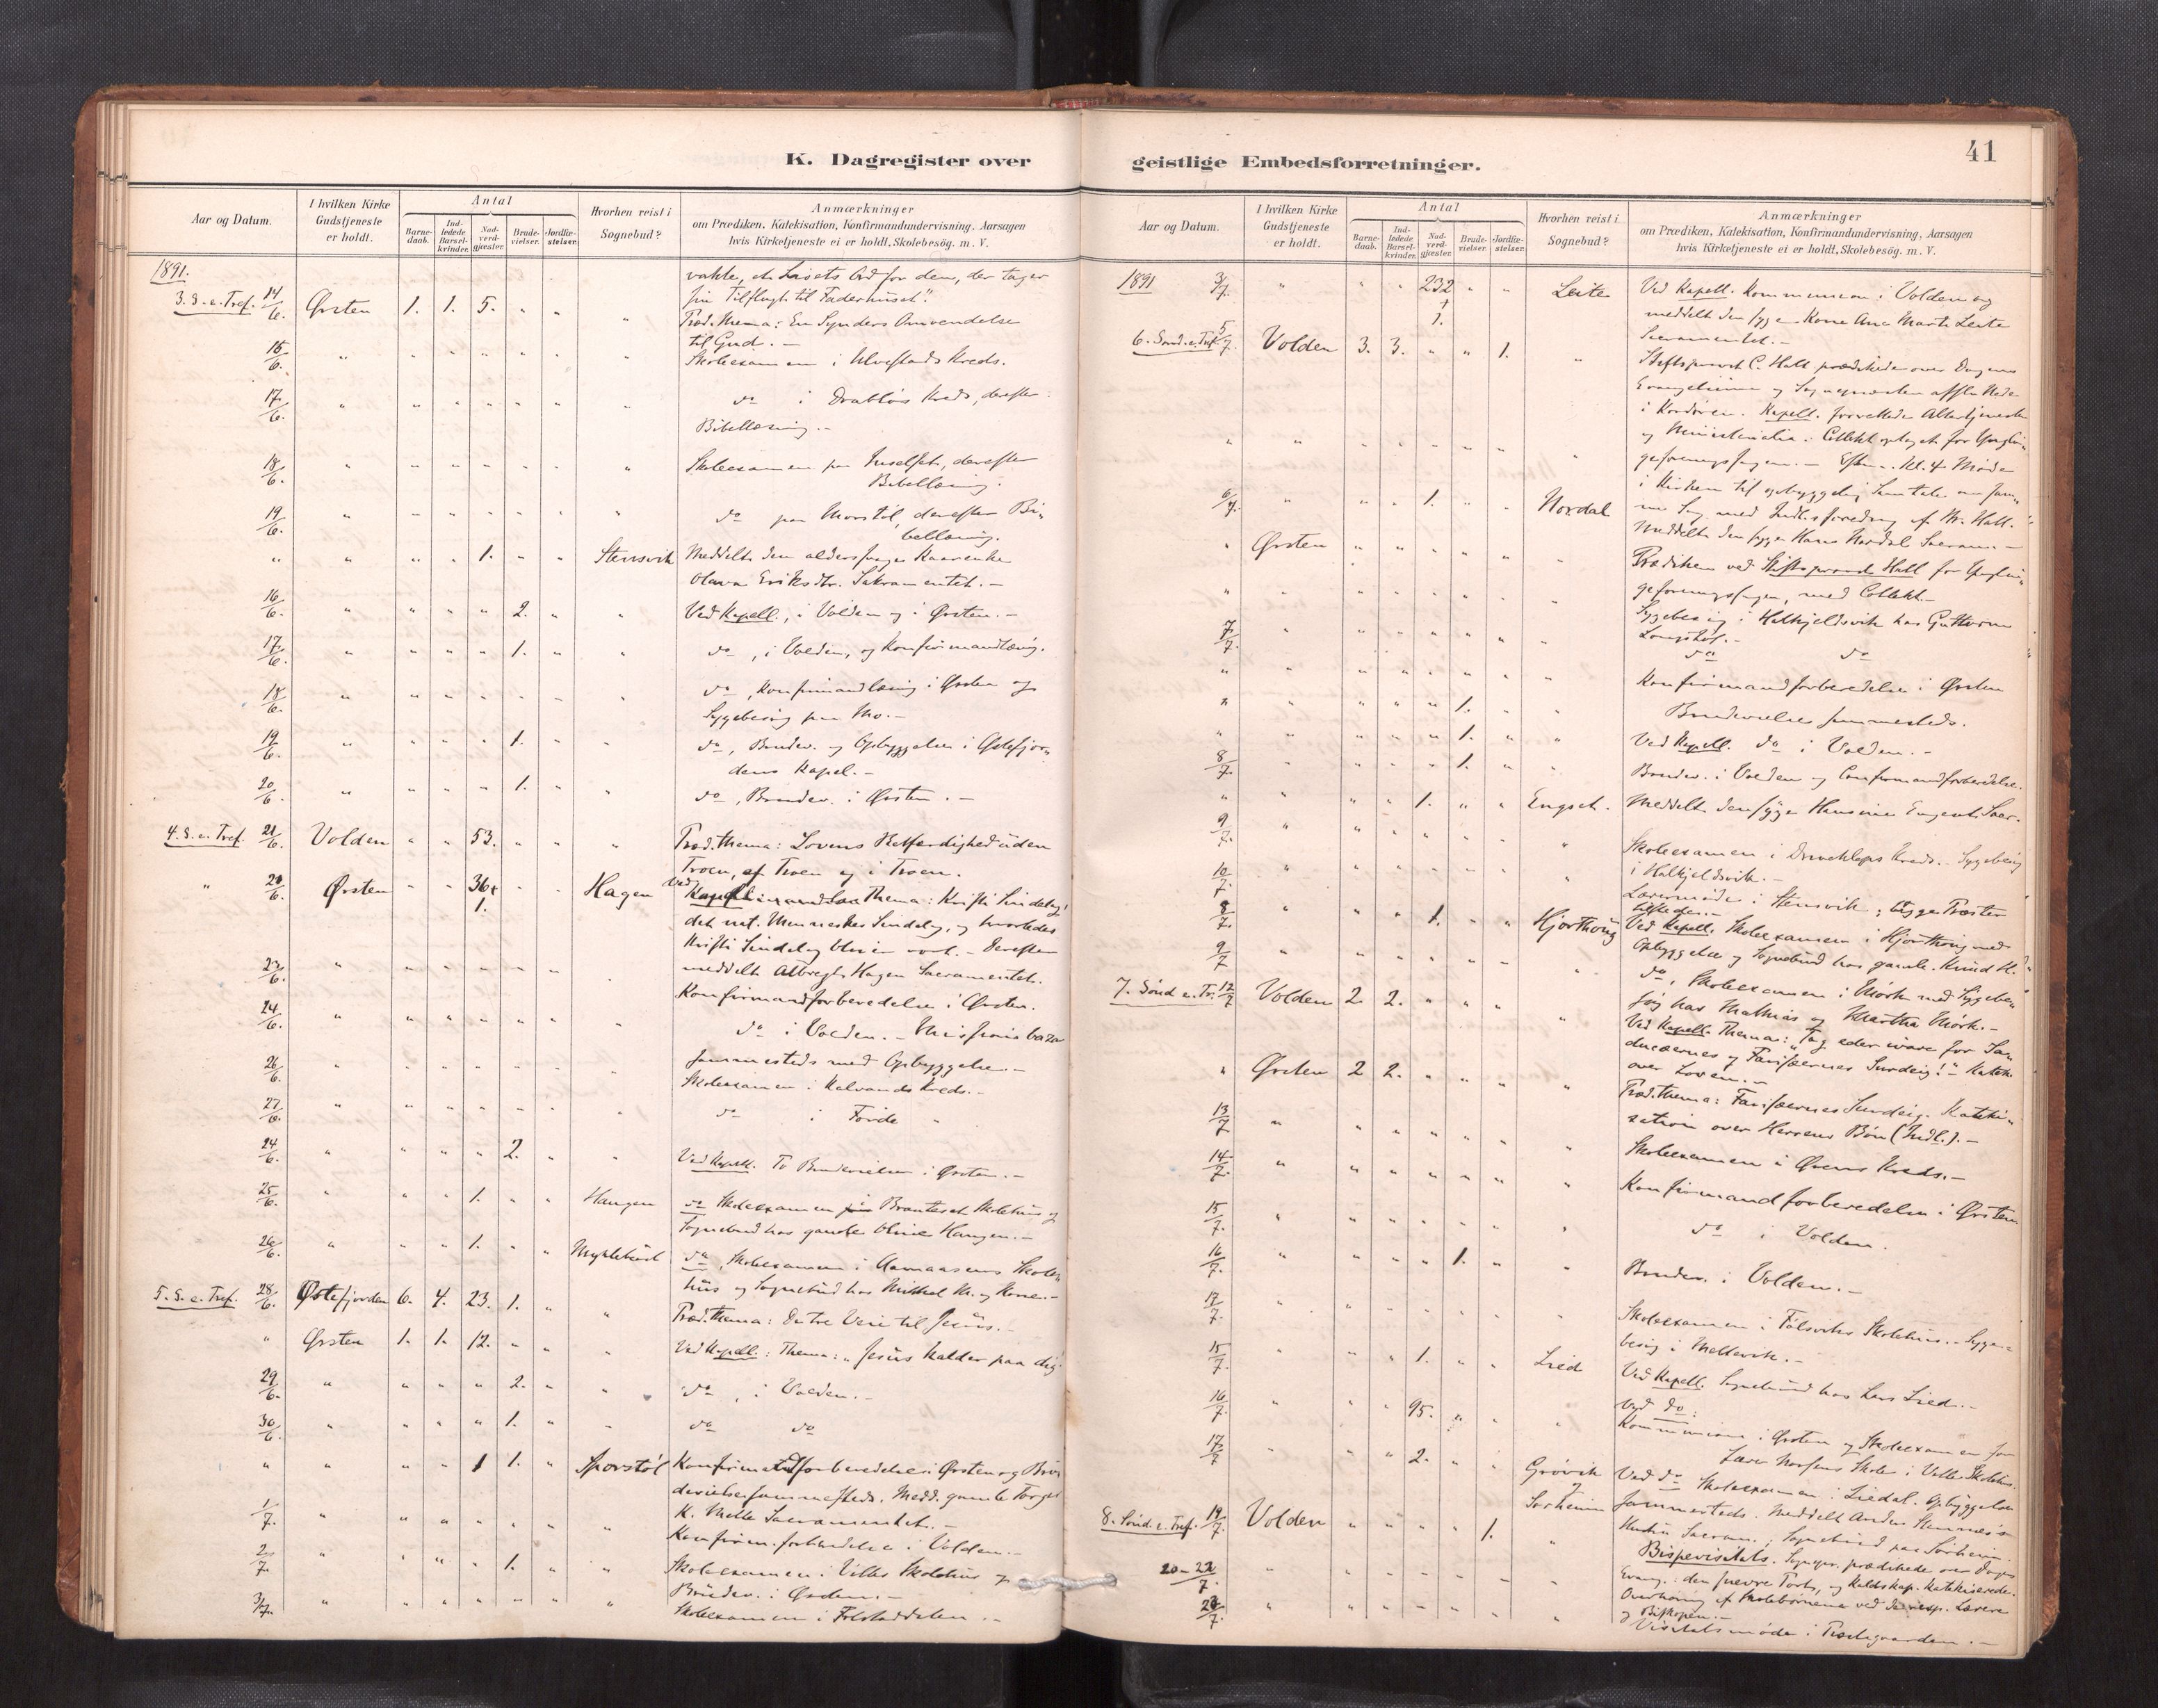 K. Dagregister over
Aar og Datum.
I hvilken Kirke Gudstjeneste er holdt.
Antal
Barnedaab.
Indledede Barselkvinder.
Nadverdgjester.
Brudevielser.
Jordfæstelser.
Hvorhen reist i Sognebud?
Anmærkninger
om Prædiken, Katekisation, Konfirmandundervisning, Aarsagen
hvis Kirketjeneste ei er holdt, Skolebesög. m. V.
1891.
for dem, der tager
Tilflugt til Faderhuset".
3. S. e. Tref. 14/6. Ørsten 1. 1. 5. " " " Præd. thema: En Synders Omvendelse
til Gud. -
15/6. " " " " " " " Skoleexamen i Ulvestads Kreds.
17/6. " " " " " " " do i Drabløs Kreds, derefter
Bibellæsning. -
18/6. " " " " " " " Skoleexamen paa , derefter
Bibellæsning.
19/6. " " " " " " " do paa , derefter Bi-
bellæsning.
" " " " 1. " " Stensvik Meddelt den alderssvage
Olava Eriksdtr. Sakramentet. -
16/6. " " " " 2. " " Ved Kapell., i Volden og i Ørsten. -
17/6. " " " " 1. " " do, i Volden, og Konfirmandlæsning.
18/6. " " " " " " " do, Konfirmandlæsning i Ørsten og
Sygebesøg paa Mo. -
19/6. " " " " 1. " " do, Brudev. og Opbyggelse i Østefjor-
dens Kapel. -
20/6. " " " " 1. " " do, Brudev. i Ørsten. -
4. S. e. Tref. 21/6. Volden " " 53. " " " Præd. thema: Lovens Retfærdighed uden
Troen, af Troen og i Troen.
" 21/6. Ørsten " " 36 + 1. " " Hagen Ved Kapell. Thema: Kristi Sindelag,
det nat. Menneskes Sindelag, og hvorledes
Kristi Sindelag bliver vort. - Derefter
meddelt Albregt Hagen Sacramentet.
23/6. " " " " " " " Konfirmandforberedelse i Ørsten.
24/6. " " " " " " " do i Volden. - Missionsbazar
sammesteds med Opbyggelse. -
26/6. " " " " " " " Skoleexamen i Kalvands Kreds. -
27/6. " " " " " " " do i Förde "
24/6. " " " " 2. " " Ved Kapell. To Brudevielser i Ørsten. -
25/6. " " " 1. " " Haugen do Skoleexamen i Brauteset Skolehus og
Sognebud hos gamle Oline Haugen. -
26/6. " " " 1. " " Myklebust do, Skoleexamen i Aamaasens Skole-
hus og Sognebud hos Mikkel M. og Kone. -
5. S. e. Tref. 28/6. Østefjorden 6. 4. 23. 1. " " Præd. thema: De tre Veie til Jesus. -
" Ørsten 1. 1. 12. " " " Ved Kapell.: Thema: "Jesus kalder paa dig!"
29/6. " " " " 2. " " do, i Volden. -
30/6. " " " " 1. " " do do
" " " " 1 1. " Sporstöl Konfirmandforberedelse i Ørsten og Bru-
devielse sammesteds. Medd. gamle Torger
K. Melle Sacramentet. -
1/7. " " " " " " " Konfirm. forberedelse i Volden. -
2/7. " " " " 1. " " Skoleexamen i Velles Skolehus og
Brudev. i Ørsten. -
3/7. " " " " " " " Skoleexamen i Folestaddalen. -
geistlige Embedsforretninger.
41
Aar og Datum.
I hvilken Kirke Gudstjeneste er holdt.
Antal
Barnedaab.
Indledede Barselkvinder.
Nadverdgjester.
Brudevielser.
Jordfæstelser.
Hvorhen reist i Sognebud?
Anmærkninger
om Prædiken, Katekisation, Konfirmandundervisning, Aarsagen
hvis Kirketjeneste ei er holdt, Skolebesög. m. V.
1891 3/7. " " " 232 + 1. " " Leite Ved Kapell. Kommunion i Volden og
meddelt den syge Kone Ane Marte Leite
Sacramentet. -
6. Sønd. e. Tref. 5/7. Volden 3. 3. " " 1. " Stiftsprovst C. Hall prædikede over Dagens
Evangelium og Sognepræsten
i Kordøren. Kapell. forrettede Altertjenesten
og Ministerialia. Collekt optaget for Ynglin-
geforeningssagen. - Efterm. Kl. 4 Møde
i Kirken til opbyggelig Samtale om sam-
me Sag med Indl.sforedrag af Pr. Hall.
6/7. " " " 1. " " Nordal Meddelt den syge Hans Nordal Sacram. -
" Ørsten " " " " " " Prædiken ved Stiftsprovst Hall for Ynglin-
geforeningssagen, med Collekt. -
" " " " " " " " Sygebesøg i Halkjeldsvik hos Guttorm
7/7. " " " " " " " do do
" " " " " " " " Konfirmandforberedelse i Ørsten
" " " " " 1. " " Brudevielse sammesteds.
" " " " " 1. " " Ved Kapell. do i Volden. -
8/7. " " " " 1. " " Brudev. i Volden og Confirmandforberedelse.
" " " " 1. " " Engset. Meddelt den syge Hansine Engset Sacr.
9/7. " " " " " " " Skoleexamen i Kreds. - Sygebesøg
i Halkjeldsvik. -
10/7. " " " " " " " Lærermøde i Stensvik, begge Præster
tilstede. -
8/7. " " " 1. " " Hjorthoug Ved Kapell. Skoleexamen i Hjorthoug med
Opbyggelse og Sognebud hos gamle Knud H.
9/7 " " " " " " " do, Skoleexamen i Mörk med Sygebe-
søg hos Mathias og Martha Mörk. -
7. Sønd e. Tr. 12/7 Volden 2 2. " " " " Ved Kapell. Thema: "Tag eder ivare for Sad-
ducæernes og Farisæernes Surdeig!" - Katek.
over Loven. -
" Ørsten 2 2. " " " " Præd. thema: Farisæernes Surdeig. Kateki-
sation over Herrens Bön (Indl.). -
13/7 " " " " " " " Skoleexamen i Ørens Kreds. -
14/7. " " " " " " " Konfirmandforberedelse i Ørsten
15/7. " " " " " " " do i Volden.
16/7. " " " " 1. " " Brudev. i Volden. -
17/7. " " " " " " " Skoleexamen i Fölsviks Skolehus. - Syge-
besøg i Mellevik. -
15/7. " " " 1. " " Lied Ved Kapell. Sognebud hos Lars Lied. -
16/7. " " " 95. " " " Ved do:
Kommunion i Ørsten og Skoleexamen for
Lærer Skole i Velles Skolehus.
17/7 " " " 2. " " Grövik og Sørheim Ved do Skoleexamen i Liedal. Opbyggelse
sammesteds. Meddelt Anders
Hustru Sacram.; Sognebud paa Sørheim.
8. Sønd. e. Tref. 19/7. Volden " " " 1. " " Bispevisitats. Sognepr. prædikede over Dagens
Evang.: den snevre Port, og Kaldskap. katekiserede.
20-22/7. " " " " " " " Overhøring af Skolebørnene ved de resp. Lærere
og Biskopen. -
23/7. " " " " " " " Visitatsmøde i Præstegaarden. -